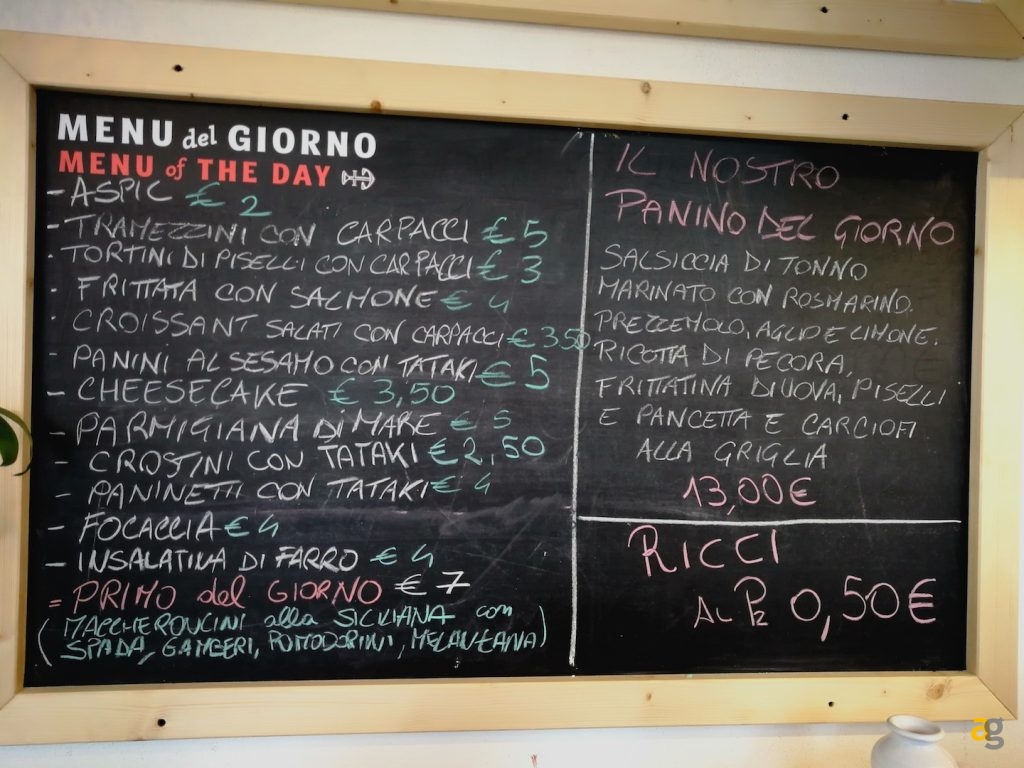 MENU del GIORNO
MENU of THE DAY
- ASPIC € 2
- TRAMEZZINI CON CARPACCI € 5
· TORTINI DI PISELLI CON CARPACCI € 3
· FRITTATA CON SALMONE € 4
· CROISSANT SALATI CON CARPACCI € 3.50
- PANINI AL SESAMO CON TATAKI € 5
- CHEESECAKE € 3,50
- PARMIGIANA DI MARE € 5
- CROSTINI CON TATAKI € 2,50
- PANINETTI CON TATAKI € 4
- FOCACCIA € 4
- INSALATINA DI FARRO € 4
= PRIMO del GIORNO € 7
(MACCHERONCINI alla SICILIANA con
SPADA, GAMBERI, POMODORINI, MELANZANA)
IL NOSTRO
PANINO DEL GIORNO
SALSICCIA DI TONNO
MARINATO CON ROSMARINO.
PREZZEMOLO, AGLIO E LIMONE.
RICOTTA DI PECORA,
FRITTATINA DI UOVA, PISELLI
E PANCETTA E CARCIOFI
ALLA GRIGLIA
13,00 €
RICCI
AL PZ 0,50 €
ag